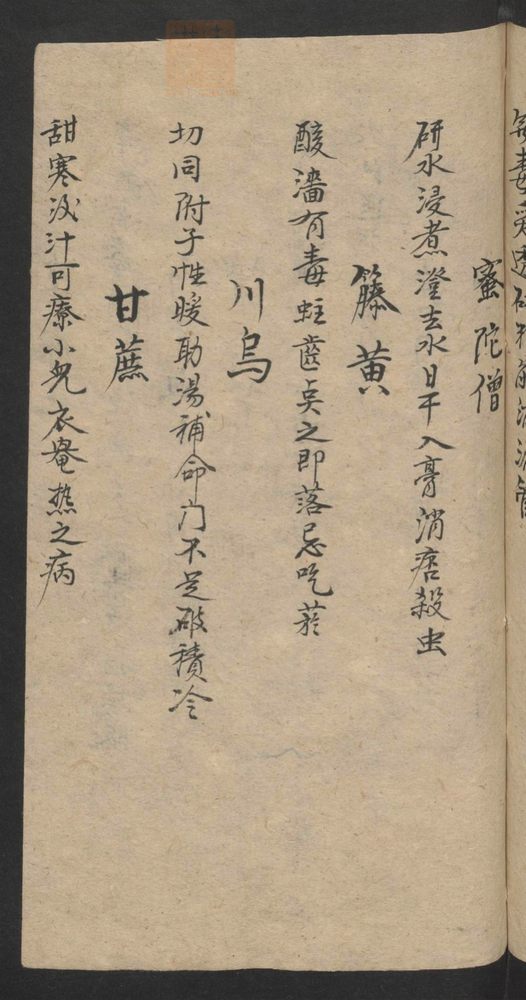 蜜陀僧
研水浸煮澄去水日干入膏消痞殺虫
籐黄
酸濇有毒蛀齒点之即落忌吃菸
川烏
切同附子性暖助湯補命门不足破積冷
甘蔗
甜寒汁可療小兒衣熱之病